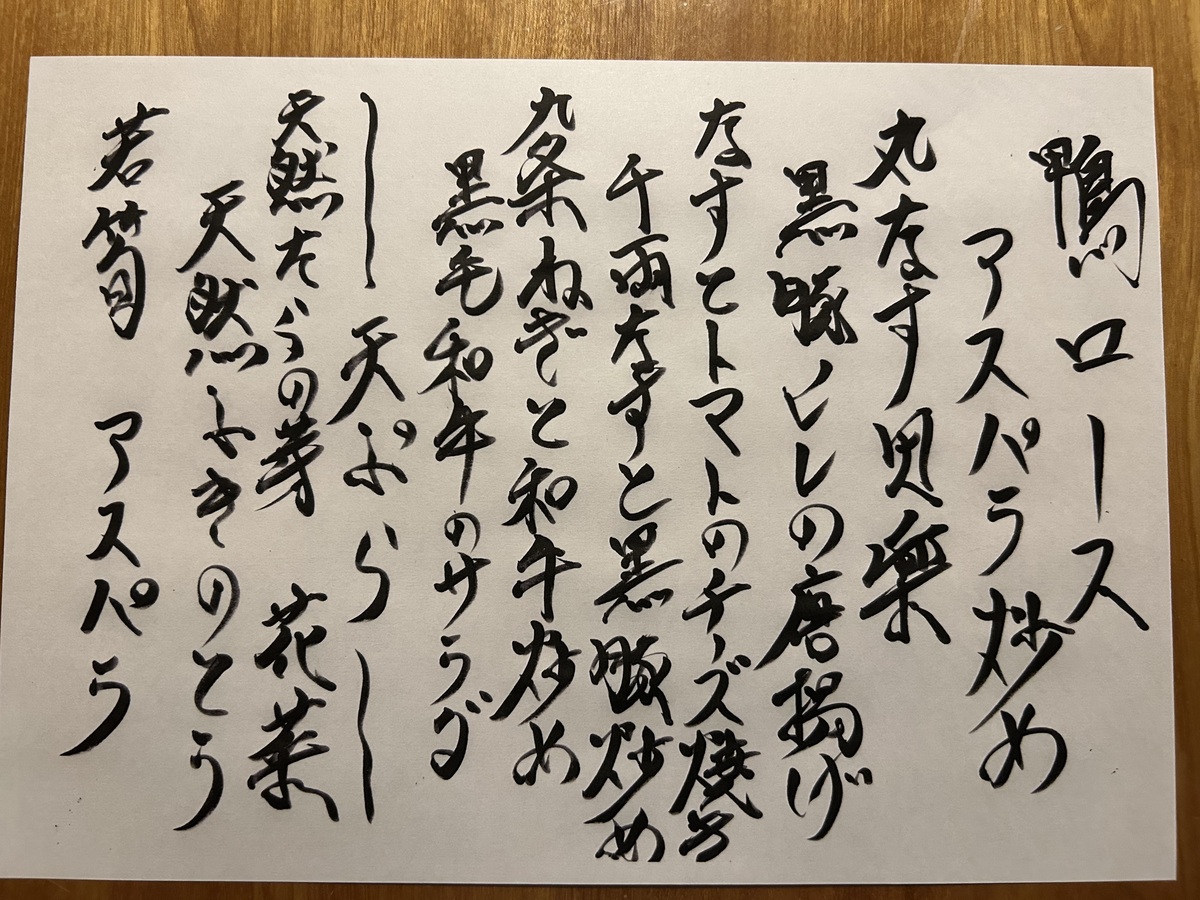 鴨ロース
アスパラ炒め
丸なす田楽
黒豚ヒレの唐揚げ
なすとトマトのチーズ焼き
千両なすと黒豚炒め
九条ねぎと和牛炒め
黒毛和牛のサラダ
ー天ぷらー
天然たらの芽 花菜
天然ふきのとう
若筍 アスパラ